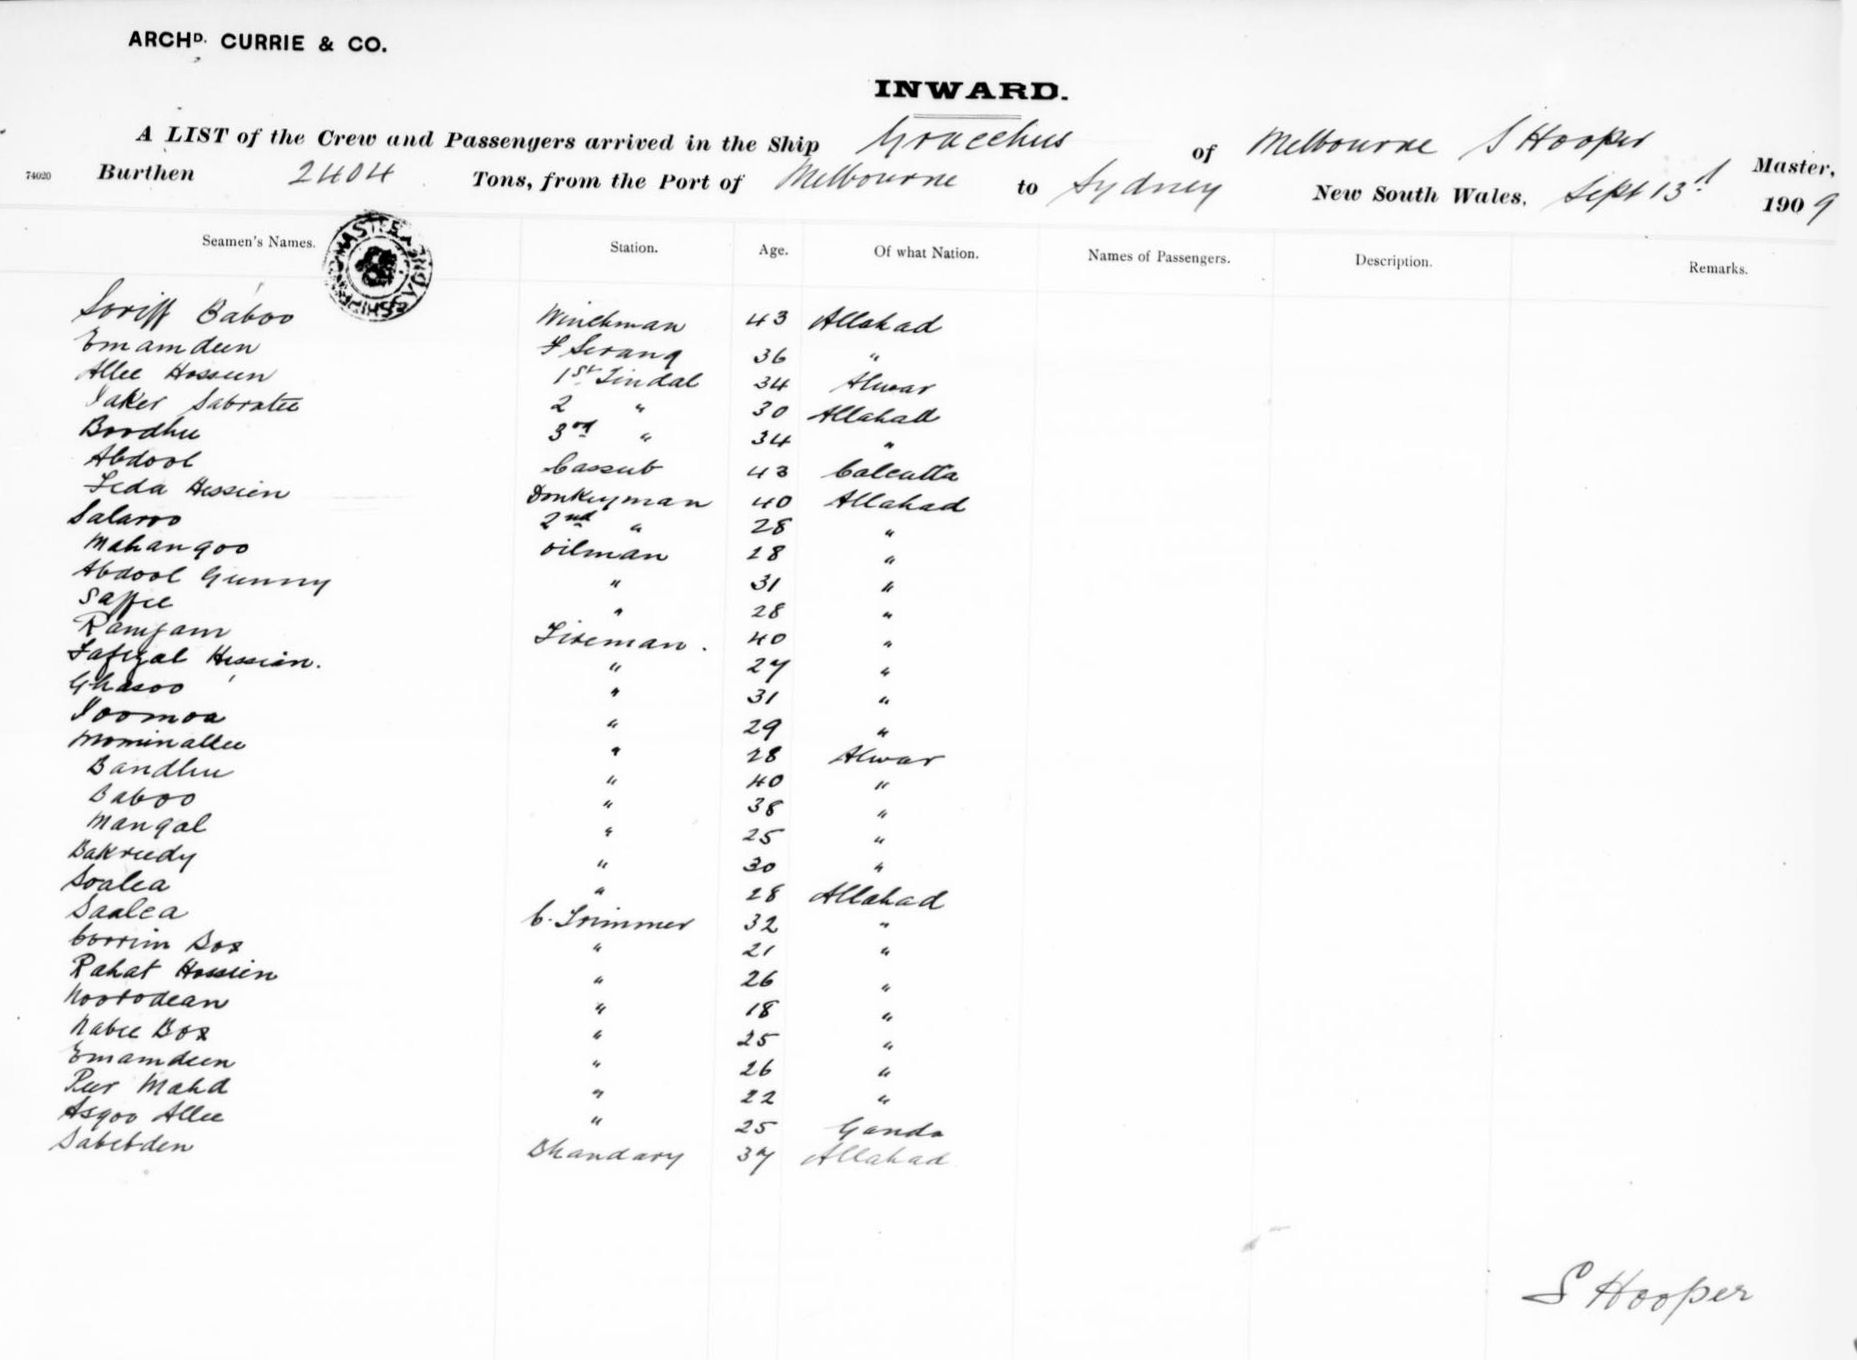 ARCHD. CURRIE & CO.
INWARD.
A LIST of the Crew and Passengers arrived in the Ship Gracchus of Melbourne S Hooper Master,
74020 Burthen 2404 Tons, from the Port of Melbourne to Sydney New South Wales, Sept 13th 1909
Seamen's Names. Station. Age. Of what Nation. Names of Passengers. Description. Remarks.
Soriff Baboo Winchman 43 Allahad
Emamdeen F Serang 36 "
Allee Hosseen 1st Tindal 34 Alwar
Jaker Sabratee 2 " 30 Allahad
Boodhu 3rd " 34 "
Abdool Cassub 43 Calcutta
Feda Hessien Donkeyman 40 Allahad
Salaroo 2nd " 28 "
Mahangoo oilman 28 "
Abdool Gunny " 31 "
Saffee " 28 "
Ramjam Fireman. 40 "
Fafezal Hessien. " 27 "
Ghasoo " 31 "
Joomoa " 29 "
Mominallee " 28 Alwar
Bandhu " 40 "
Baboo " 38 "
Mangal " 25 "
Bakreedy " 30 "
Soalea " 28 Allahad
Saalea C. Trimmer 32 "
Corrim Box " 21 "
Rahat Hossien " 26 "
Noorodean " 18 "
Nabee Box " 25 "
Emamdeen " 26 "
Peer Mahd " 22 "
Asgoo Allee " 25 Ganda
Sabebden Bhandary 37 Allahad
S Hooper